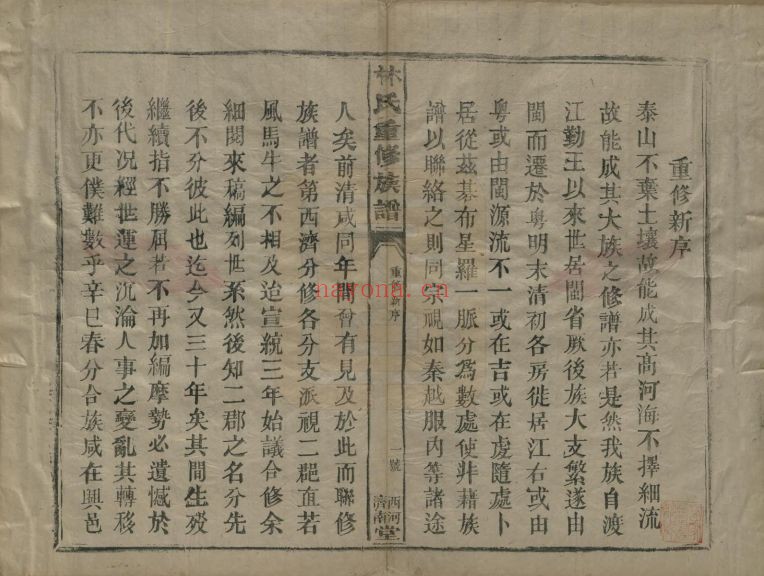 重修新序
泰山不棄土壤故能成其高河海不擇細流
故能成其大族之修譜亦若是然我族自渡
江勤王以來世居閩省厥後族大支繁遂由
閩而遷於粵明末清初各房徙居江右或由
粵或由閩源流不一或在吉或在虔隨處卜
居從茲碁布星羅一脈分爲數處使非藉族
譜以聯絡之則同宗視如秦越服內等諸途
林氏重修族譜
重修新序
一號
西河
濟南
堂
人矣前清咸同年間曾有見及於此而聯修
族譜者第西濟分修各分支派視二郡直若
風馬牛之不相及迨宣統三年始議合修余
細閱來稿編列世系然後知二郡之名分先
後不分彼此也迄今又三十年矣其間生歿
繼續指不勝屈若不再加編摩勢必遺憾於
後代况經世運之沉淪人事之變亂其轉移
不亦更僕難數乎辛巳春分合族咸在興邑